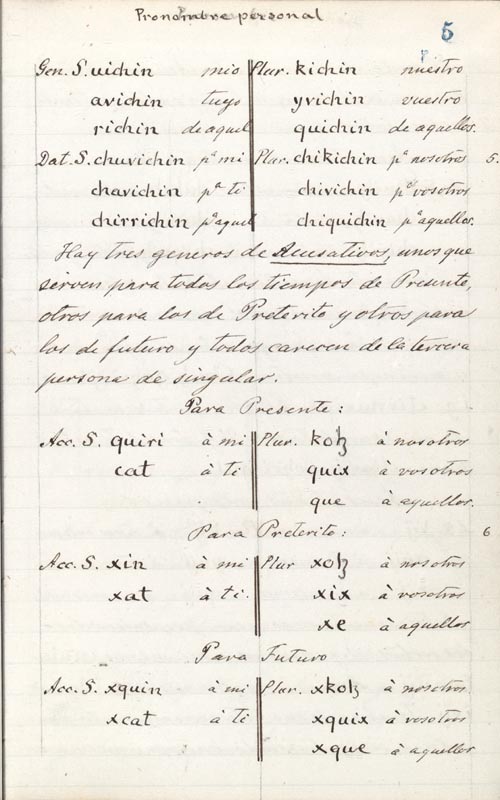 Pronombre personal
5
Gen. S. uichin mio Plur. kichin nuestro
avichin tuyo yvichin vuestro
richin de aquel quichin de aquellos.
Dat. S. chuvichin pª mi Plur. chikichin pª nosotros 5.
chavichin pª ti chivichin pª vosotros
chirrichin pª aquel chiquichin pª aquellos.
Hay tres generos de Acusativos, unos que
serven para todos los tiempos de Presente,
otros para los de Preterito y otros para
los de futuro y todos carecen de la tercera
persona de singular.
Para Presente:
Acc. S. quiri à mi Plur. koꜫ à nosotros
cat à ti quix à vosotros
que à aquellos.
Para Preterito: 6
Acc. S. xin à mi Plur xoꜫ à nosotros
xat à ti. xix à vosotros
xe à aquellos
Para Futuro
Acc. S. xquin à mi Plur. xkoꜫ à nosotros
xcat à ti xquix à vosotros
xque à aquellos